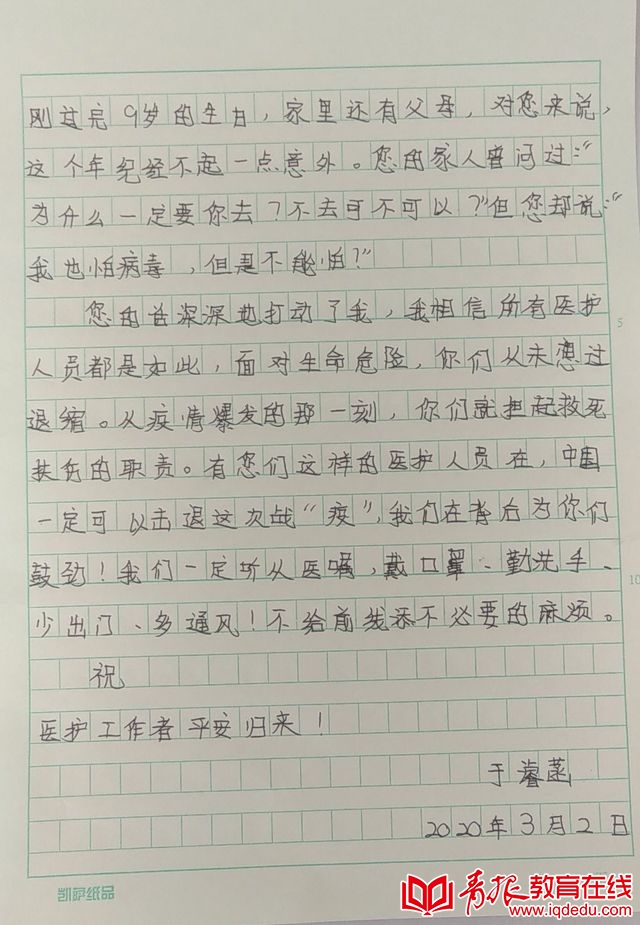 刚过完9岁的生日，家里还有父母，对您来说，
这个年纪经不起一点意外。您的家人曾问过：“
为什么一定要你去？不去可不可以？”但您却说：“
我也怕病毒，但是不能怕？”
您的话深深地打动了我，我相信所有医护
人员都是如此，面对生命危险，你们从未想过
退缩。从疫情爆发的那一刻，你们就担起救死
扶伤的职责。有您们这样的医护人员在，中国
一定可以击退这次战“疫”，我们在背后为你们
鼓劲！我们一定听从医嘱，戴口罩、勤洗手、
少出门、多通风！不给前线添不必要的麻烦。
祝
医护工作者平安归来！
于睿菡
2020年3月2日
5
10
凯萨纸品
青报教育在线
www.iqdedu.com